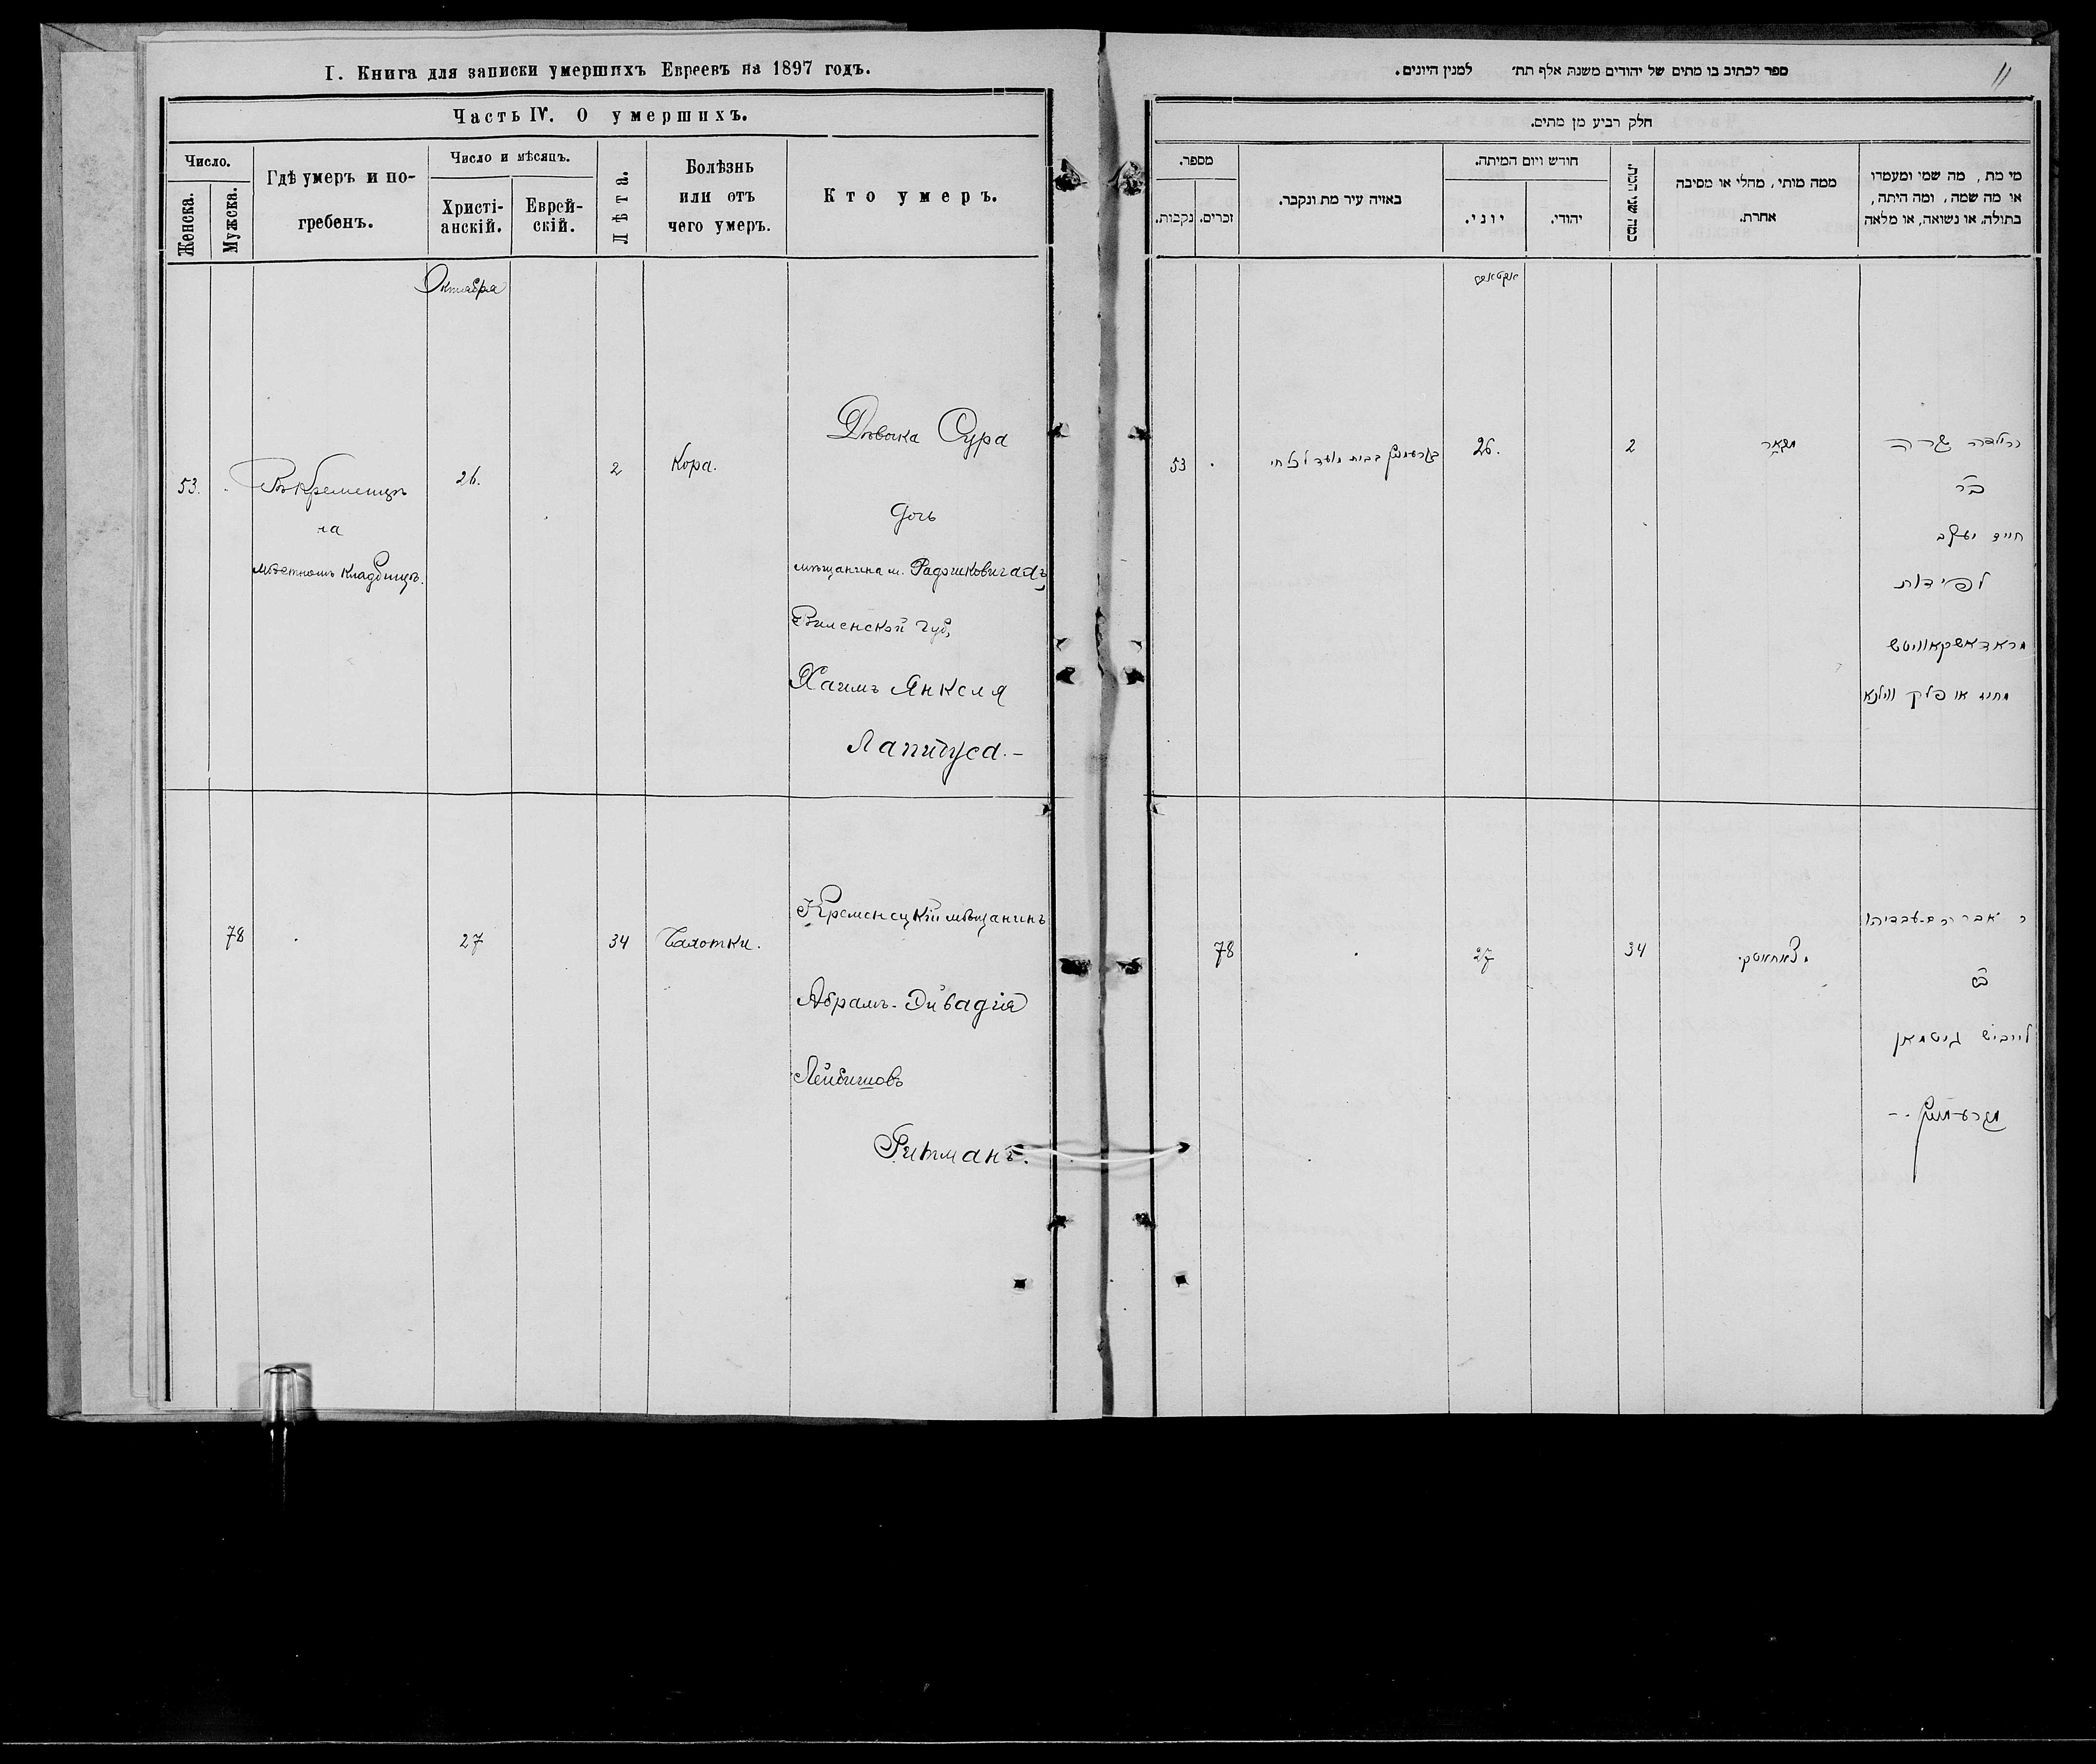 I. Книга для записки умершихъ Евреевъ на 1897 годъ.
Часть IV. О умершихъ.
Число.
Женска.
Мужска.
Гдѣ умеръ и по-
гребенъ.
Число и мѣсяцъ.
Христі-
анскій.
Еврей-
скій.
Лѣта.
Болѣзнь
или отъ
чего умеръ.
Кто умеръ.
Октября
53.
Въ Кременцѣ
на
мѣстномъ кладбищѣ.
26.
2
Кора.
Дѣвочка Сура
дочь
мѣщанина м.
Виленской губ,
Хаимъ Янкеля
Лапидуса.-
78
27
34
Чахотки.
Кременецкій мѣщанинъ
Абрамъ-
Лейбишовъ
Гитманъ.
11
ספר לכתוב בו מתים של יהודים משנת אלף תת׳ למנין היונים.
חלק רביע מן מתים.
מספר.
נקבות.
זכרים.
באיזה עיר מת ונקבר.
חודש ויום המיתה.
יוני.
יהודי.
כמה שני המת.
ממה מותי, מחלי או מסיבה
אחרת.
מי מת, מה שמו ומעמדו
או מה שמה, ומה היתה,
בתולה, או נשואה, או מלאה
53
26.
2
הילדה שרה
ב״ר
חיים יעקב
לפידות
78
27
34
לייביש גיטמאן